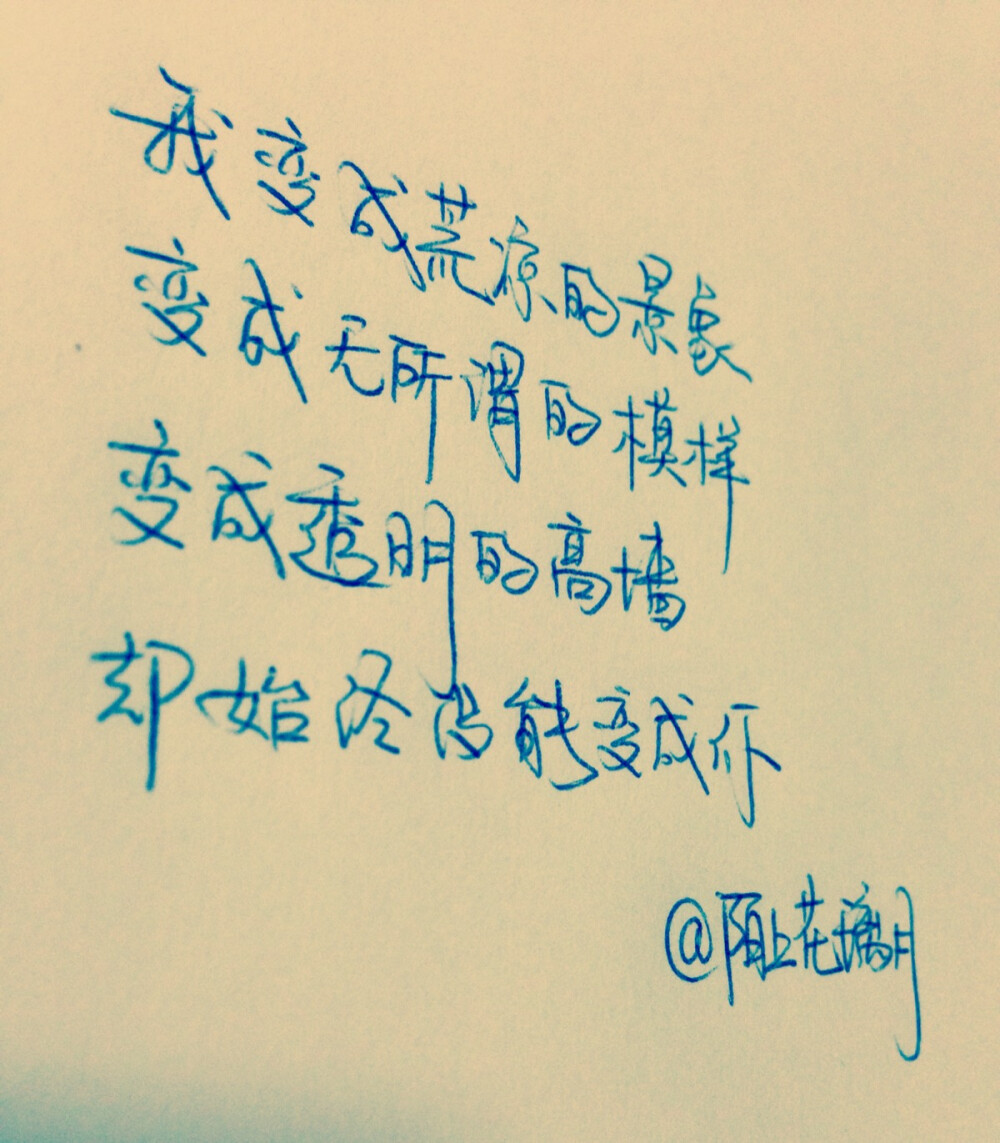 我变成荒凉的景象
变成无所谓的模样
变成透明的高墙
却始终没能变成你
@陌上花璃月